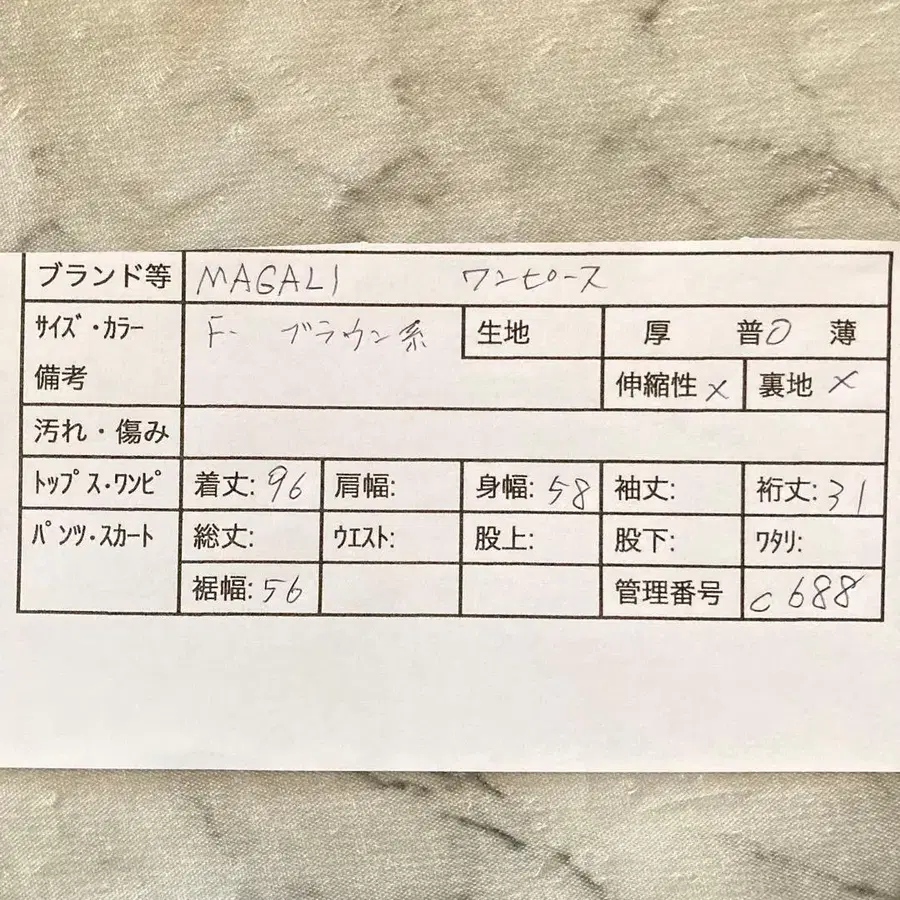 ブランド等 MAGALI ワンピース
サイズ・カラー F. ブラウン系 生地 厚 普○ 薄
備考 伸縮性 × 裏地 ×
汚れ・傷み
トップス・ワンピ 着丈: 96 肩幅: 身幅: 58 袖丈: 裄丈: 31
パンツ・スカート 総丈: ウエスト: 股上: 股下: ワタリ:
裾幅: 56 管理番号 c688